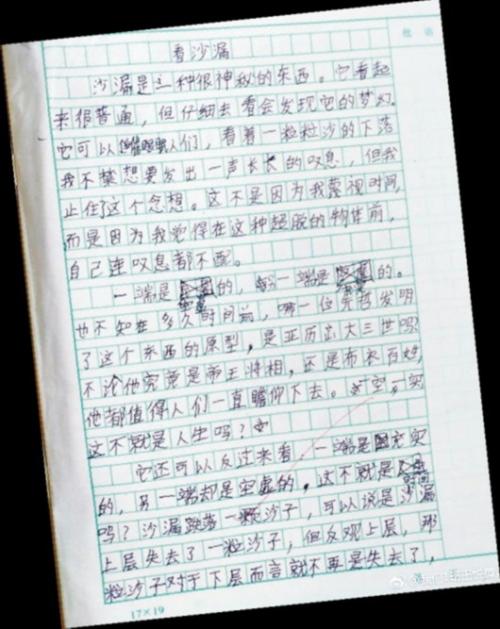 看沙漏
沙漏是一种很神秘的东西。它看起
来很普通，但仔细去看会发现它的梦幻。
它可以催眠人们，看着一粒粒沙的下落
我不禁想要发出一声长长的叹息，但我
止住了这个念想。这不是因为我蔑视时间，
而是因为我觉得在这种超脱的物件前，
自己连叹息都不配。
一端是的，另一端是的。
也不知在多久时间前，哪一位先哲发明
了这个东西的原型，是亚历山大三世吗
不论他究竟是帝王将相，还是布衣百姓，
他都值得人们一直瞻仰下去。一空，一实
这不就是人生吗？
它还可以反过来看，一端是充实
的，另一端却是空虚的，这不就是
吗？沙漏跌落一颗沙子，可以说是沙漏
上层失去了一粒沙子，但反观上层，那
粒沙子对于下层而言就不再是失去了，
17×19